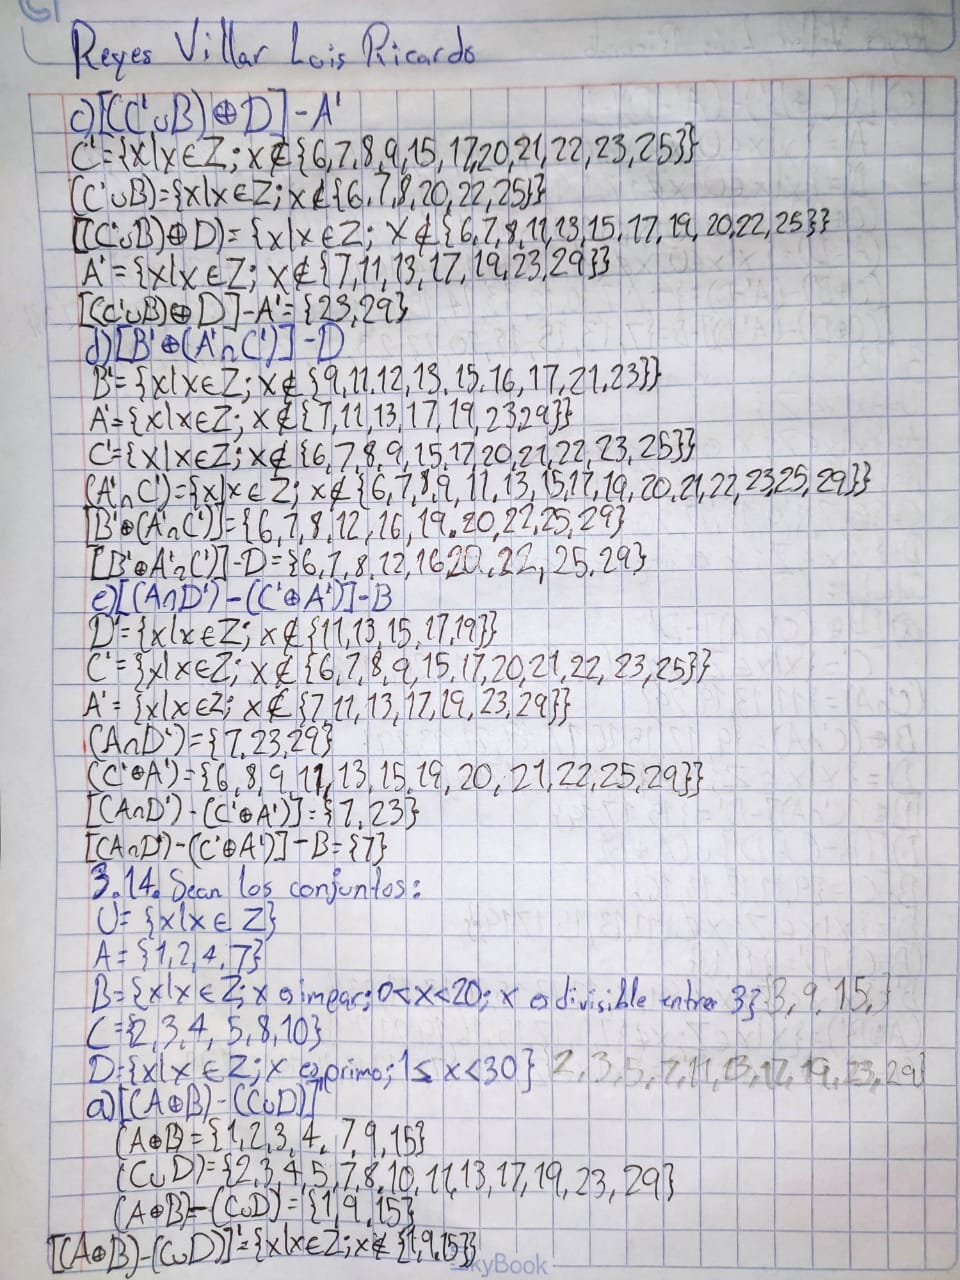 Reyes Villar Luis Ricardo
c)[(C'∪B)⊕D]-A'
C'={x|x∈Z; x∉{6,7,8,9,15,17,20,21,22,23,25}}
(C'∪B)={x|x∈Z; x∉{6,7,8,20,22,25}}
[(C'∪B)⊕D)={x|x∈Z; x∉{6,7,8,11,13,15,17,19,20,22,25}}
A'={x|x∈Z; x∉{7,11,13,17,19,23,29}}
[(C'∪B)⊕D]-A'={23,29}
d)[B'⊕(A'∩C')]-D
B'={x|x∈Z; x∉{9,11,12,13,15,16,17,21,23}}
A'={x|x∈Z; x∉{7,11,13,17,19,23,29}}
C'={x|x∈Z; x∉{6,7,8,9,15,17,20,21,22,23,25}}
(A'∩C')={x|x∈Z; x∉{6,7,8,9,11,13,15,17,19,20,21,22,23,25,29}}
[B'⊕(A'∩C')]={6,7,8,12,16,19,20,22,25,29}
[B'⊕A'∩C')]-D={6,7,8,12,16,20,22,25,29}
e)[(A∩D')-(C'⊕A')]-B
D'={x|x∈Z; x∉{11,13,15,17,19}}
C'={x|x∈Z; x∉{6,7,8,9,15,17,20,21,22,23,25}}
A'={x|x∈Z; x∉{7,11,13,17,19,23,29}}
(A∩D')={7,23,29}
(C'⊕A')={6,8,9,11,13,15,19,20,21,22,25,29}}
[(A∩D')-(C'⊕A')]={7,23}
[(A∩D')-(C'⊕A')]-B={7}
3.14. Sean los conjuntos:
U={x|x∈Z}
A={1,2,4,7}
B={x|x∈Z; x es impar; 0<x<20; x es divisible entre 3} {3,9,15,}
C={2,3,4,5,8,10}
D={x|x∈Z; x es primo; 1≤x<30} {2,3,5,7,11,13,17,19,23,29}
a)[(A⊕B)-(C∪D)]'
(A⊕B)={1,2,3,4,7,9,15}
(C∪D)={2,3,4,5,7,8,10,11,13,17,19,23,29}
(A⊕B)-(C∪D)={1,9,15}
[(A⊕B)-(C∪D)]'={x|x∈Z; x∉{1,9,15}}
SkyBook